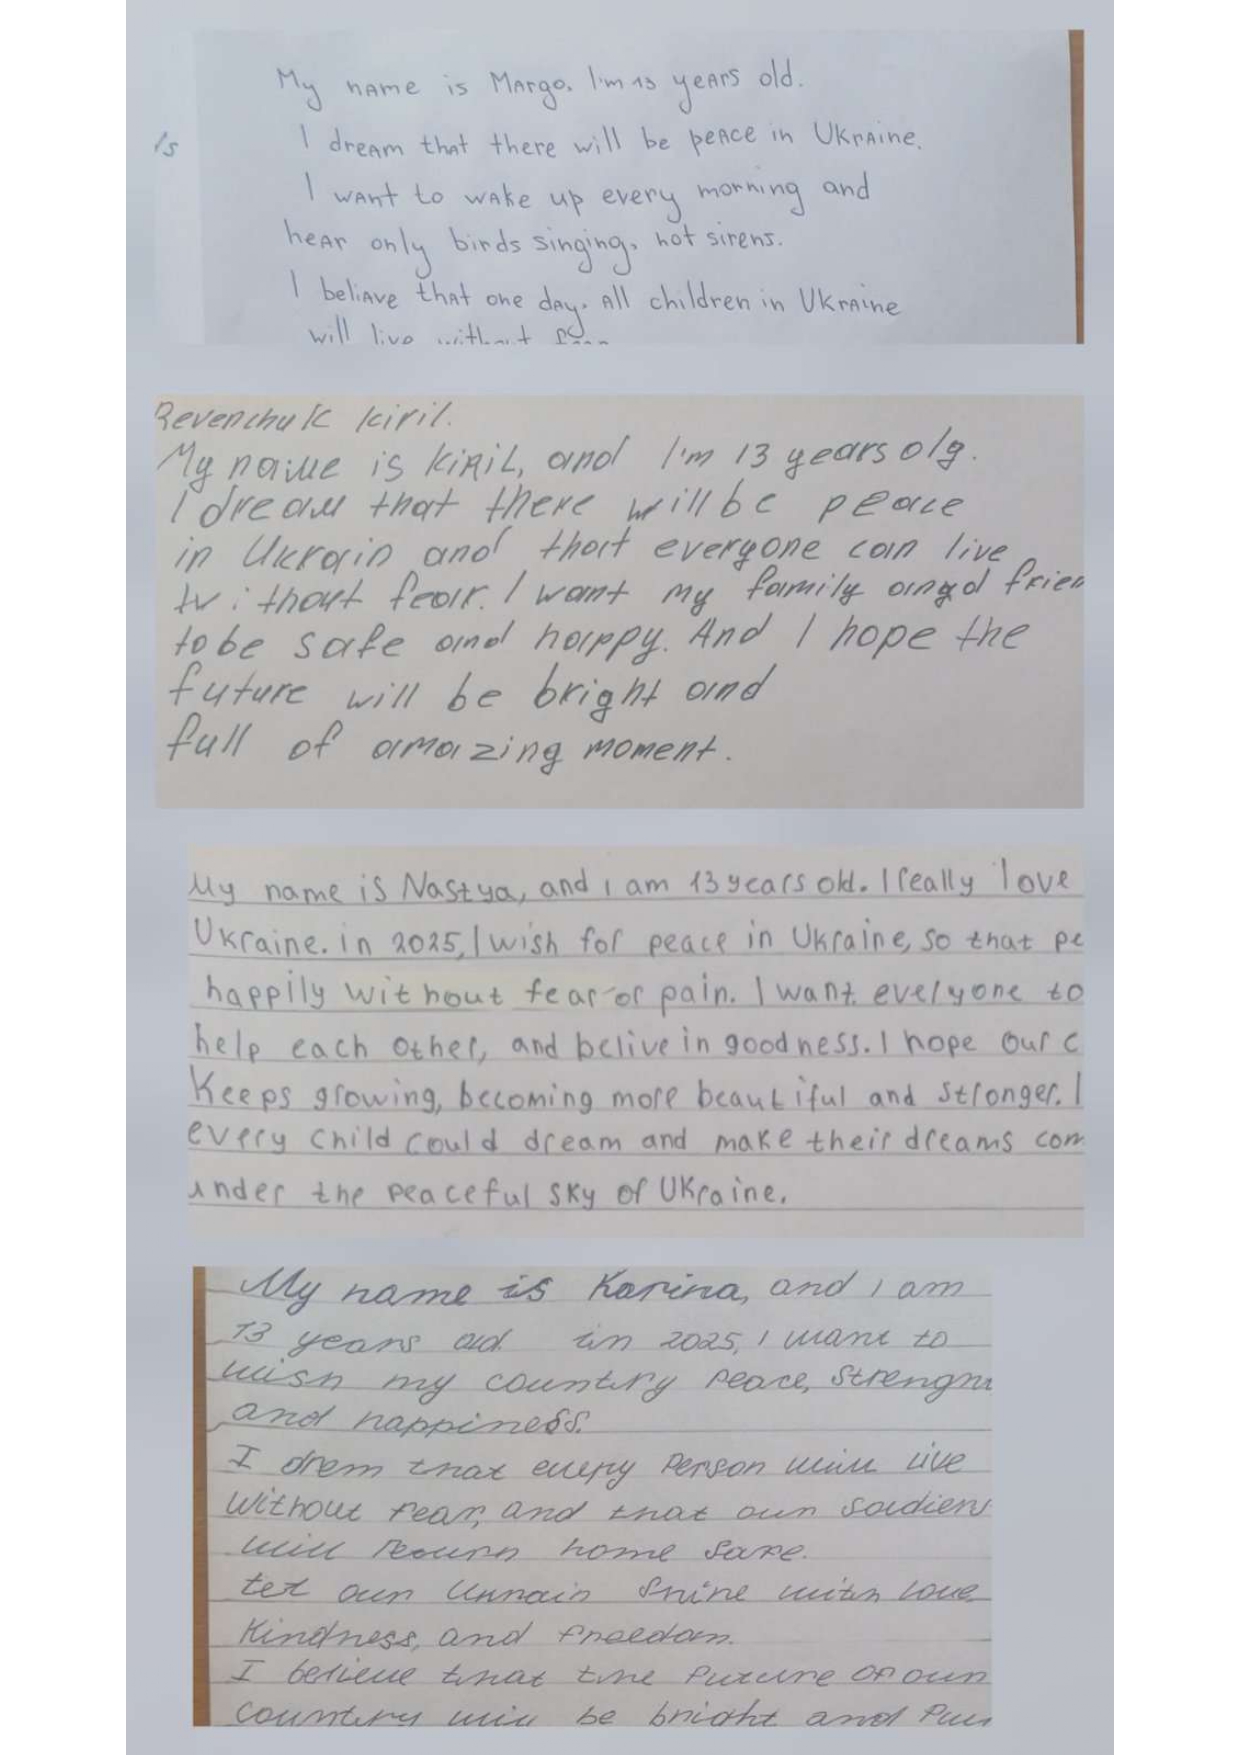 My name is Margo. I'm 13 years old.
Is
I dream that there will be peace in Ukraine.
I want to wake up every morning and
hear only birds singing, not sirens.
I beliave that one day. All children in Ukraine
will live without
Revenchuk Kiril.
My name is Kiril, and I'm 13 years olg.
I dream that there will be peace
in Ukrain and that everyone can live
without fear. I want my family angd frien
to be safe and happy. And I hope the
future will be bright and
full of amazing moment.
My name is Nastya, and i am 13 years old. I really love
Ukraine. in 2025, I wish for peace in Ukraine, so that pe
happily without fear or pain. I want everyone to
help each other, and belive in goodness. I hope our c
Keeps growing, becoming more beautiful and stronger. I
every child could dream and make their dreams com
under the peaceful sky of Ukraine.
My name is Karina, and i am
13 years old in 2025, i want to
wish my country peace, strength
and happiness.
I drem that every person will live
without fear, and that our soldiers
will return home safe.
let our Ukrain shine with love
Kindness, and freedom.
I believe that the future of our
country will be bright and full